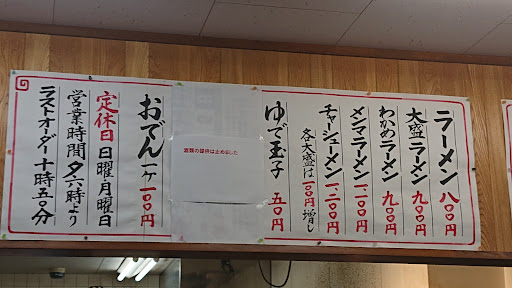 ラーメン 八〇〇円
大盛ラーメン 九〇〇円
わかめラーメン 九〇〇円
メンマラーメン 一二〇〇円
チャーシューメン 一二〇〇円
各大盛は一〇〇円増し
ゆで玉子 五〇円
酒類の提供は止めました
おでん一ヶ 一〇〇円
定休日 日曜月曜日
営業時間夕六時より
ラストオーダー十時五〇分